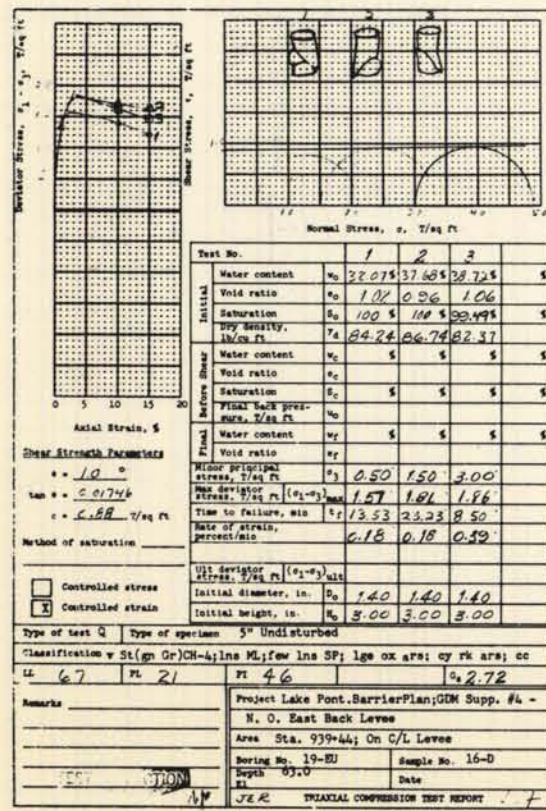 1 2 3
Deviator Stress, σ1 - σ3, T/sq ft
Shear Stress, τ, T/sq ft
Normal Stress, σ, T/sq ft
0 5 10 15 20
Axial Strain, %
Shear Strength Parameters
φ = 1.0 °
tan φ = 0.01746
c = 0.88 T/sq ft
Method of saturation
Controlled stress
X Controlled strain
Test No. 1 2 3
Initial
Water content w₀ 37.68% 38.72% %
Void ratio e₀ 0.96 1.06
Saturation S₀ 100 % 100 % 99.49% %
Dry density, lb/cu ft γd 84.24 86.74 82.37
Before Shear
Water content wc % % % %
Void ratio ec
Saturation Sc % % % %
Final back pressure, T/sq ft u₀
Final
Water content wf % % % %
Void ratio ef
Minor principal stress, T/sq ft σ3 0.50 1.50 3.00
Max deviator stress, T/sq ft (σ1-σ3)max 1.86
Time to failure, min tf 13.53 23.23 8.50
Rate of strain, percent/min 0.18 0.18 0.39
Ult deviator stress, T/sq ft (σ1-σ3)ult
Initial diameter, in. D₀ 1.40 1.40 1.40
Initial height, in. H₀ 3.00 3.00 3.00
Type of test Q Type of specimen 5" Undisturbed
Classification v St(gn Gr)CH-4;lns ML;few lns SP; lge ox ars; cy rk ars; cc
LL 67 PL 21 PI 46 Gs 2.72
Remarks
Project Lake Pont.BarrierPlan;GDM Supp. #4 -
N. O. East Back Levee
Area Sta. 939+44; On C/L Levee
Boring No. 19-EU Sample No. 16-D
Depth 63.0 Date
El
JER TRIAXIAL COMPRESSION TEST REPORT